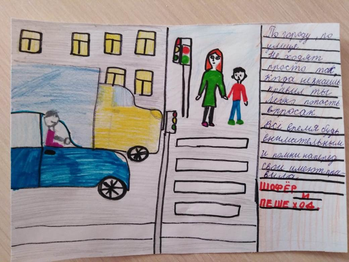 По городу по
улице
Не ходят
просто так
Когда не знаешь
правил ты
Легко попасть
впросак
Все время будь
внимательным
и помни наперед
свои имеют пра
вила
ШОФЁР
И
ПЕШЕХОД